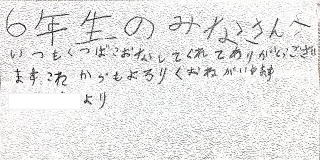 6年生のみなさんへ
いつもくつばこおなしてくれてありがとうござい
ますこれからもよろしくおねがいします
より